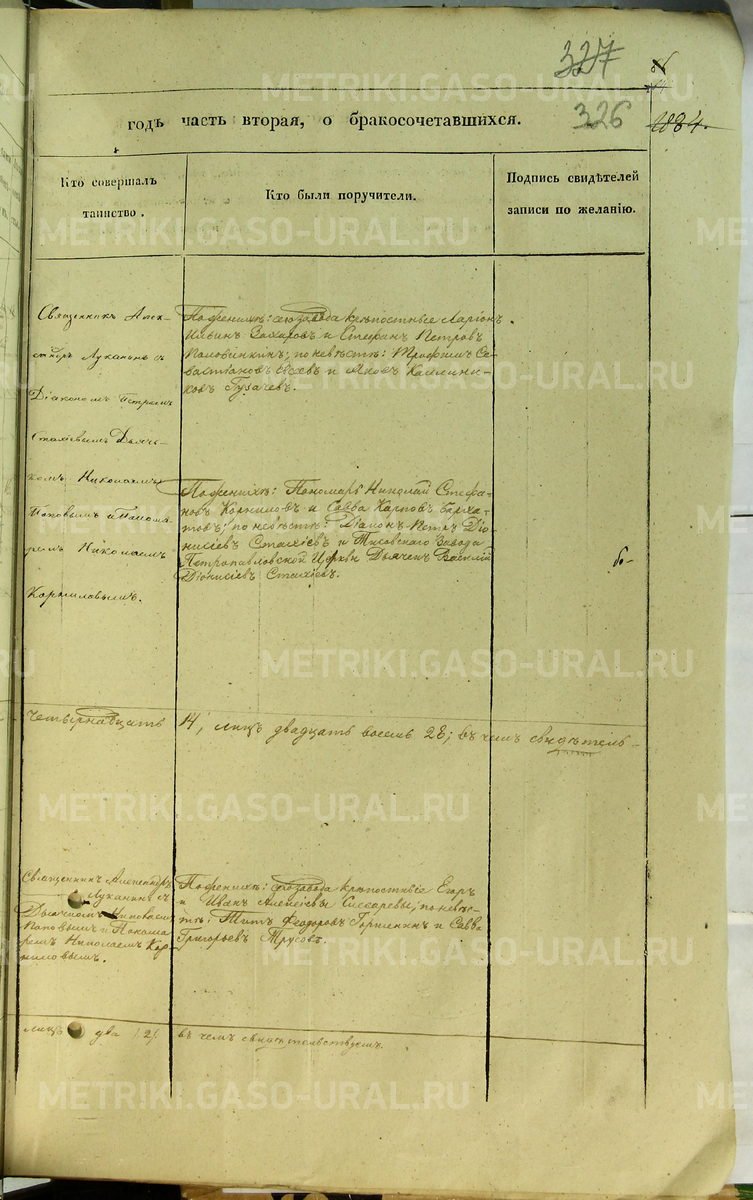 327
326
1884.
годъ часть вторая, о бракосочетавшихся.
Кто совершалъ
таинство.
Кто были поручители.
Подпись свидѣтелей
записи по желанію.
Священникъ Алек-
сандръ Луканинъ съ
Діакономъ Петромъ
Стахіевымъ Дьяч-
комъ Николаемъ
Поповымъ и Понома-
ремъ Николаемъ
Корниловымъ.
По женихѣ: сего завода крѣпостные Ларіонъ
Ильинъ Захаровъ и Стефанъ Петровъ
Половинкинъ; по невѣстѣ: Трофимъ Се-
вастіановъ и Яковъ Каллини-
ковъ
По женихѣ: Пономарь Николай Стефа-
новъ Корниловъ и Савва Карповъ Барха-
товъ; по невѣстѣ: Діаконъ Петръ Діо-
нисіевъ Стахіевъ и Тисовскаго Завода
Петропавловской Церкви Дьячекъ Василій
Діонисіевъ Стахіевъ.
четырнадцать 14, лицъ двадцать восемь 28; въ чемъ свидѣтель-
Священникъ Александръ
Луканинъ съ
Дьячкомъ Николаемъ
Поповымъ и Понома-
ремъ Николаемъ Кор-
ниловымъ.
По женихѣ: сего завода крѣпостные Егоръ
и Иванъ Алексіевы Слесаревы; по невѣс-
тѣ: Титъ Феодоровъ и Савва
Григорьевъ Трусовъ.
лицъ два /2/. въ чемъ свидѣтельствуемъ.
METRIKI.GASO-URAL.RU